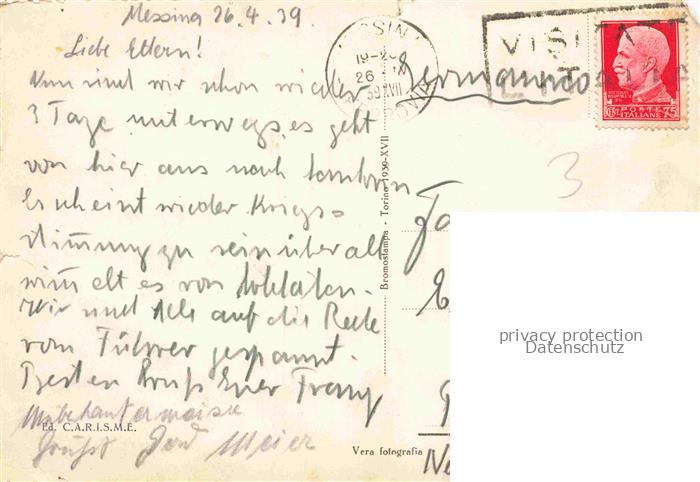 Messina 26.4.39.
Liebe Eltern!
Nun sind wir schon wieder
3 Tage unterwegs, es geht
von hier aus nach
Es scheint wieder Kriegs-
stimmung zu sein überall
wimmelt es von Soldaten.
Wir sind alle auf die Rede
vom Führer gespannt.
Besten Gruß Euer Franz
Unbekannterweise
Ed. C.A.R.I.S.M.E.
Grüßt Meier
Vera fotografia
Bromostampa - Torino 1939-XVII
MESSINA
19-20
26
39 XVII
VISITATE
Germania
POSTE
ITALIANE
CENT. 75
3
privacy protection
Datenschutz